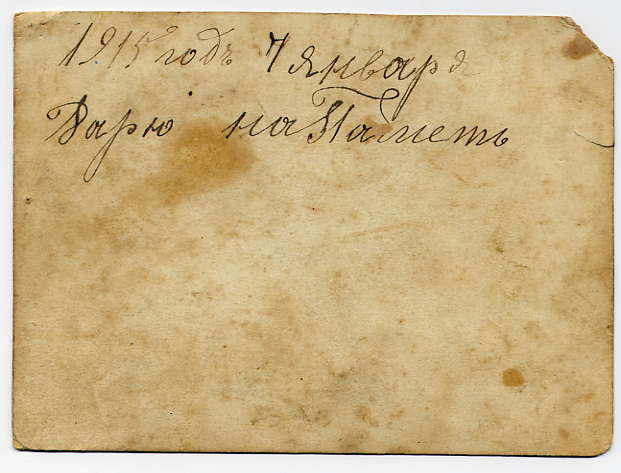 1915 годъ 7 января
Дарю на Паметь